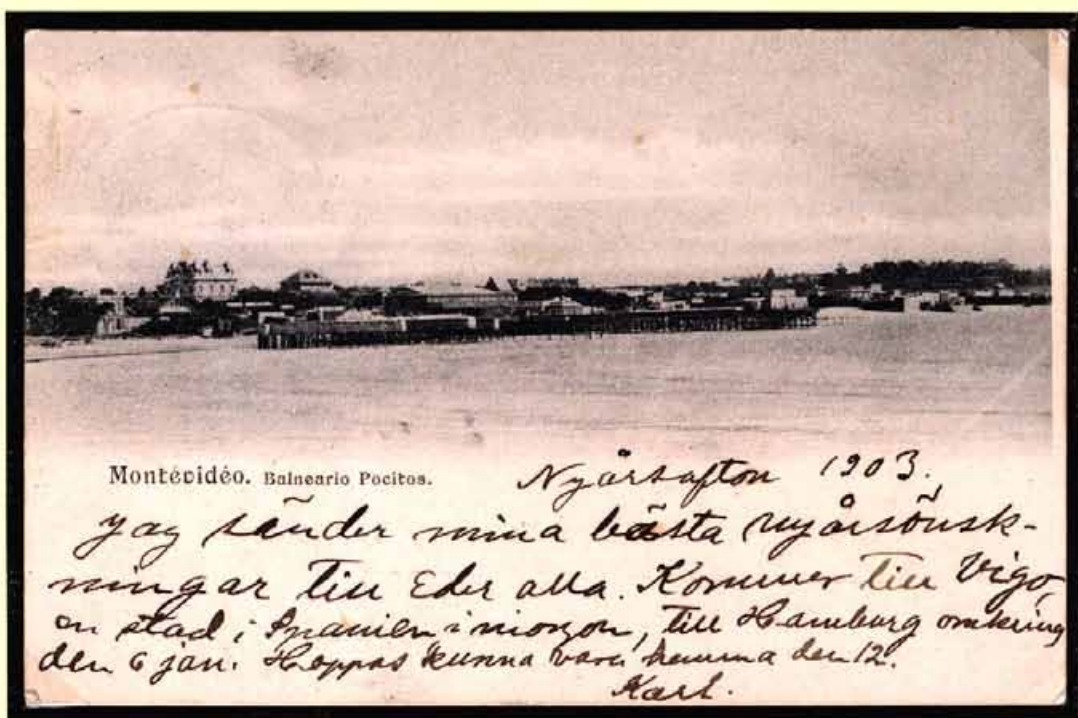 Montévidéo. Balneario Pocitos.
Nyårsafton 1903.
Jag sänder mina bästa nyårsönsk-
ningar till Eder alla. Kommer till Vigo,
en stad i Spanien i morgon, till Hamburg omkring
den 6 jan. Hoppas kunna vara hemma den 12.
Karl.